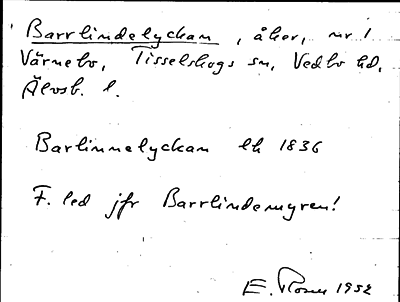 Barrlindelyckan, åker, nr 1
Värnebo, Tisselskogs sn, Vedbo hd,
Älvsb. l.
Barlinnelyckan lh 1836
F. led jfr Barrlindemyren!
E. Rosén 1952